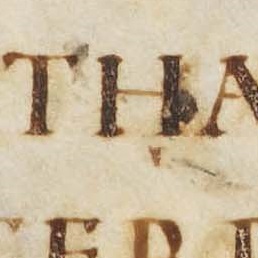 THA
ERT